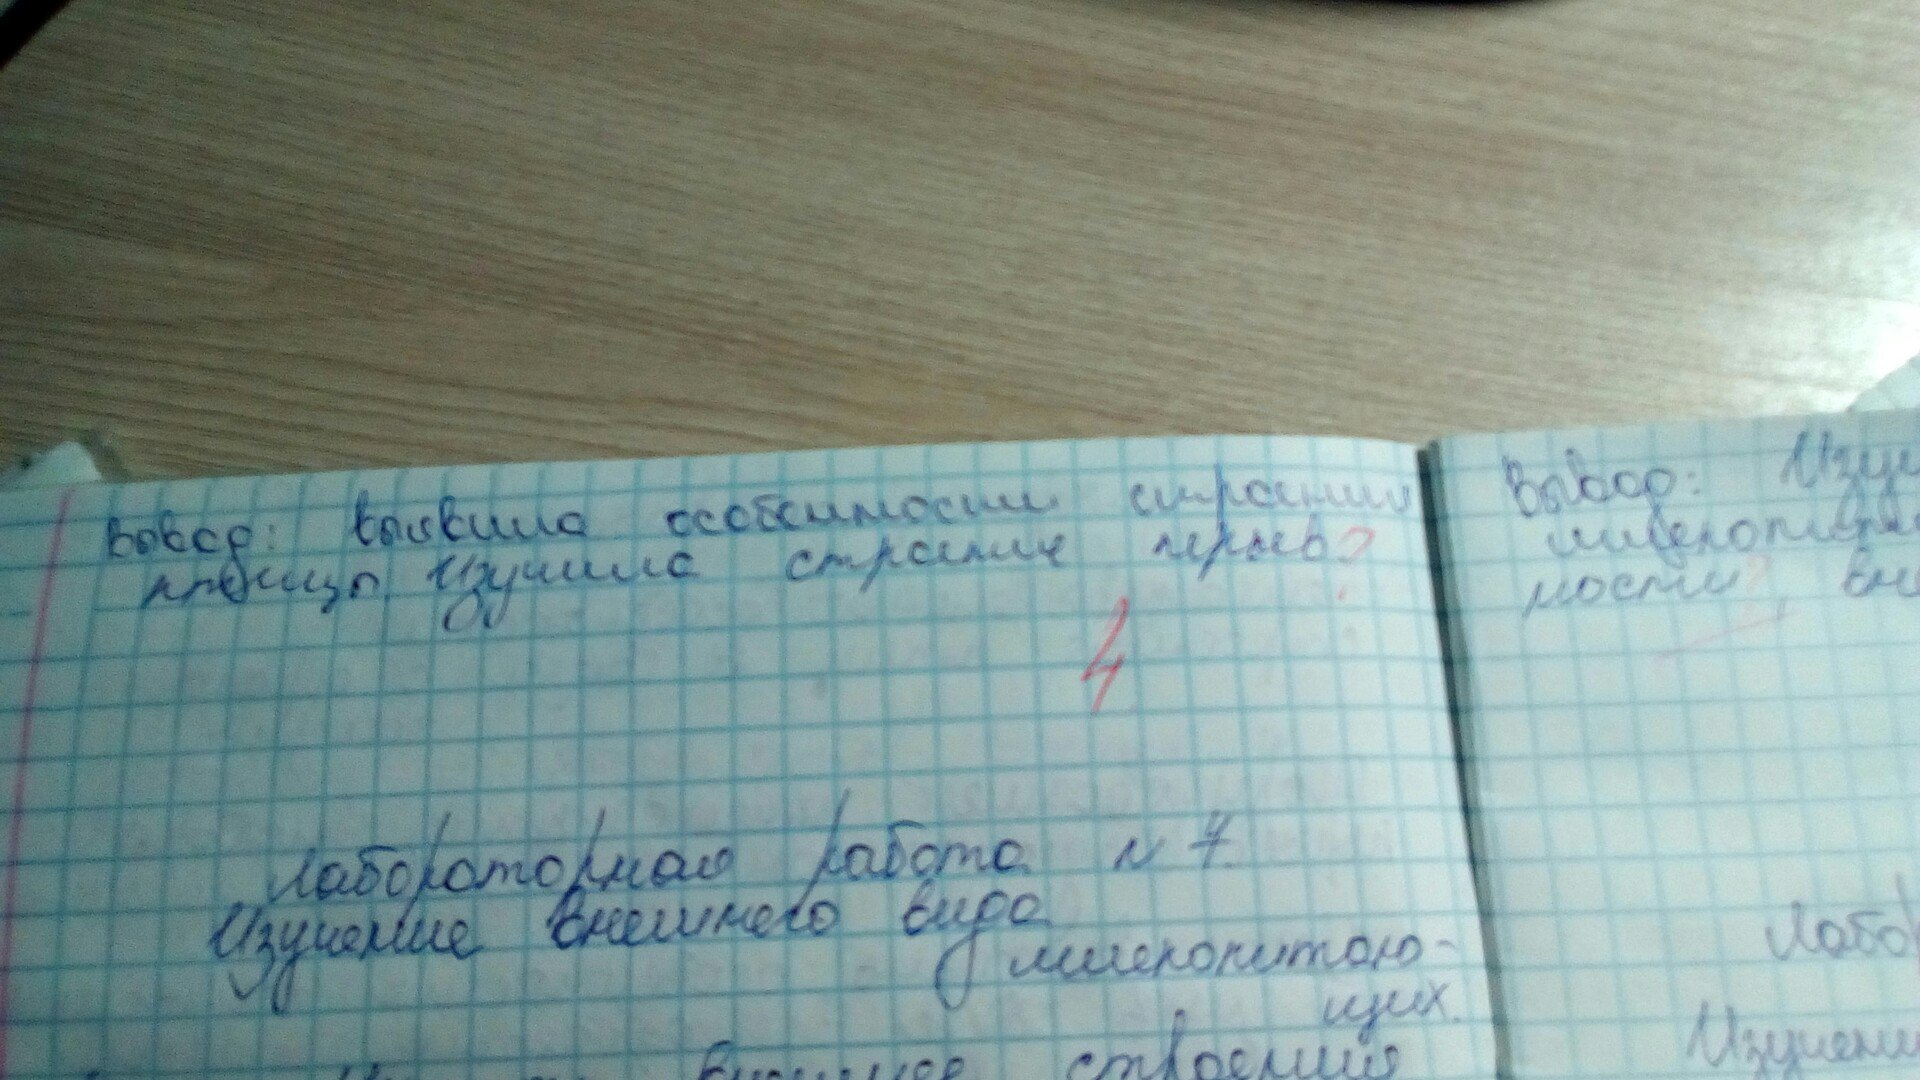 Вывод: выявила особенности строения
птицы, изучила строение перьев ?
4
Лабораторная работа N 7.
Изучение внешнего вида
млекопитаю-
щих.
внешнее строения
Вывод: Изуч
млекопита
ности вне
Лабор
Изучени